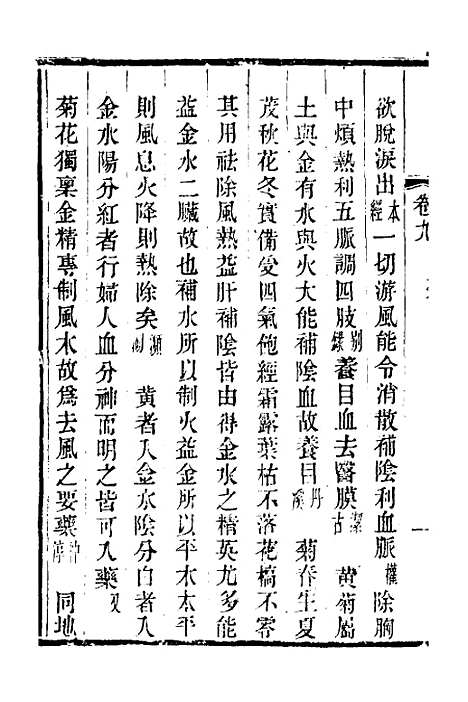 卷九
欲脫淚出本經一切游風能令消散補陰利血脈權除胸
中煩熱利五脈調四肢別錄養目血去瞖膜潔古黃菊屬
土與金有水與火大能補陰血故養目丹溪菊春生夏
茂秋花冬實備受四氣飽經霜露葉枯不落花槁不零
其用祛除風熱益肝補陰皆由得金水之精英尤多能
益金水二臟故也補水所以制火益金所以平木木平
則風息火降則熱除矣瀕湖黃者入金水陰分白者入
金水陽分紅者行婦人血分神而明之皆可入藥又
菊花獨稟金精專制風木故爲去風之要藥同地